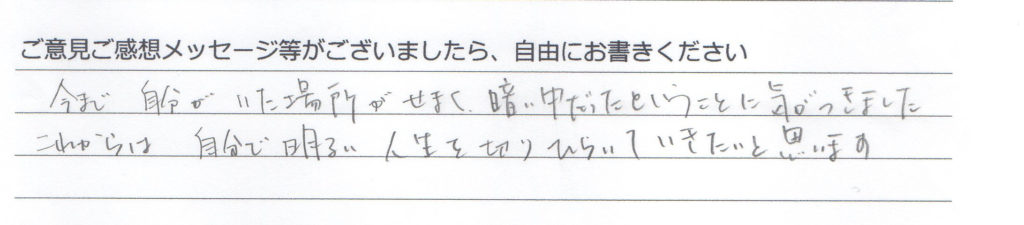 ご意見ご感想メッセージ等がございましたら、自由にお書きください
今まで 自分が いた場所が せまく、暗い中だったということに気がつきました
これからは 自分で 明るい 人生を 切りひらいて いきたいと思います